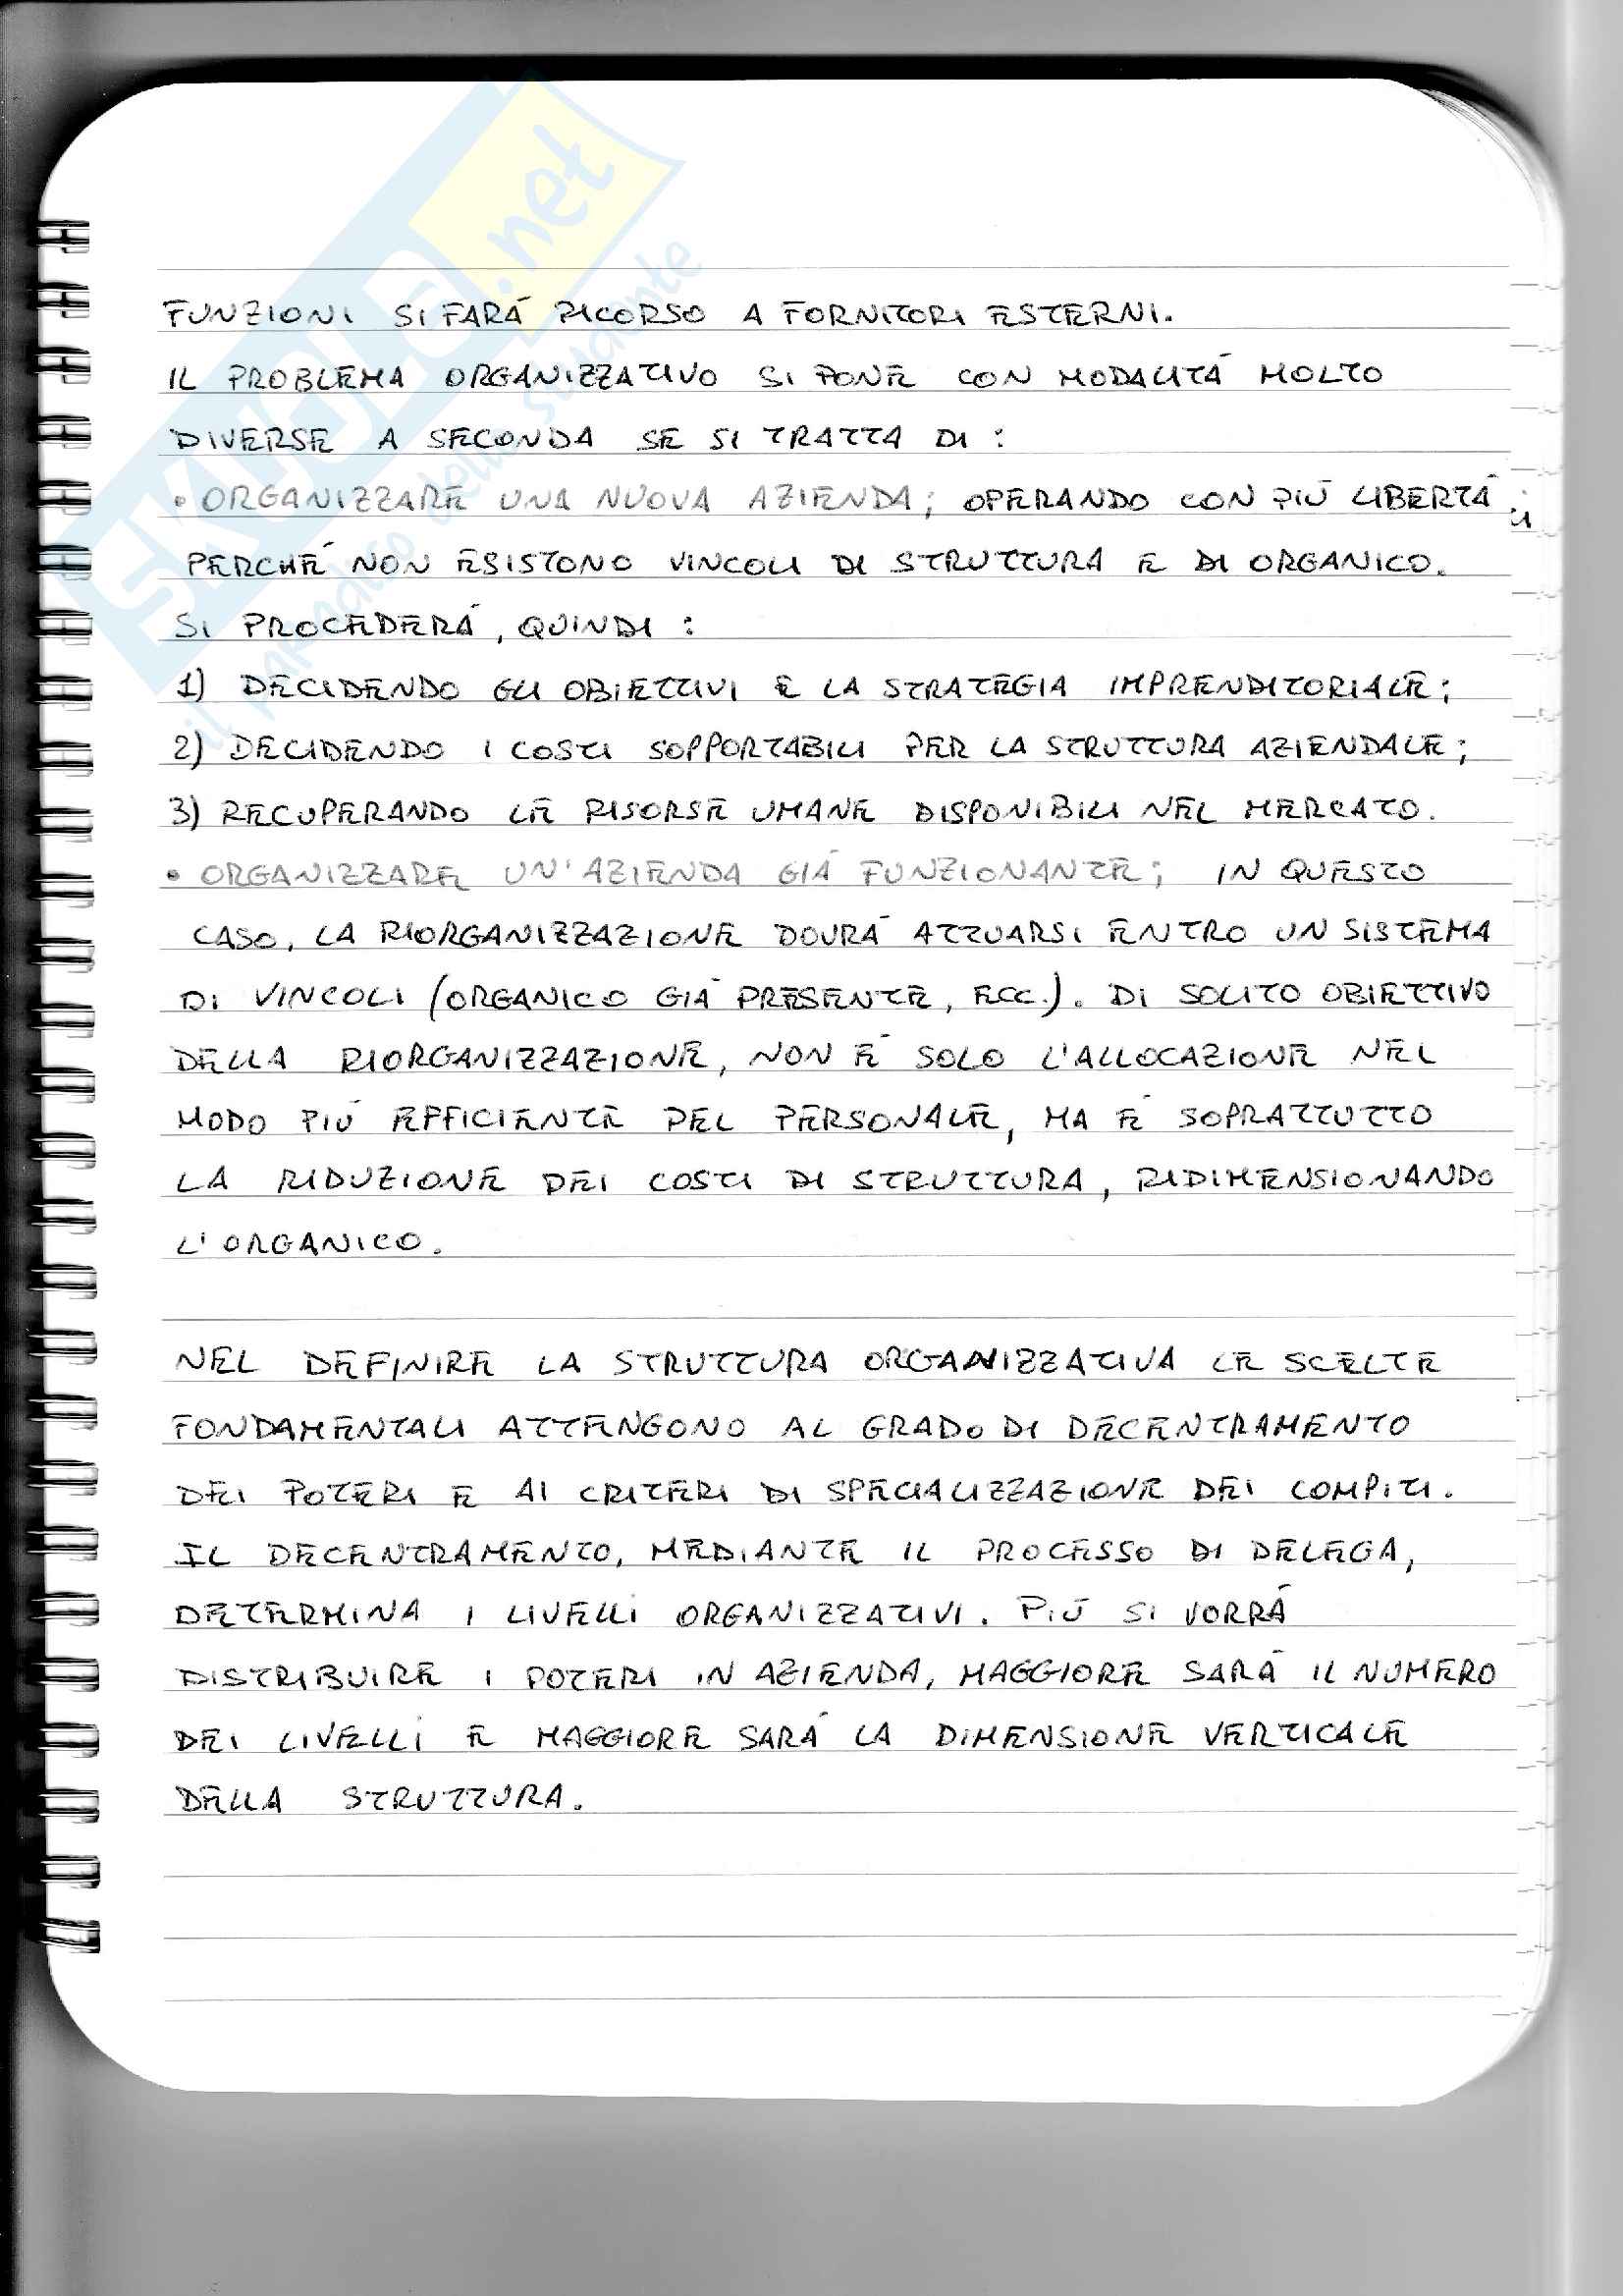 SKUOLA.net
il paradiso dello studente
FUNZIONI SI FARÁ RICORSO A FORNITORI ESTERNI.
IL PROBLEMA ORGANIZZATIVO SI PONE CON MODALITÁ MOLTO
DIVERSE A SECONDA SE SI TRATTA DI :
• ORGANIZZARE UNA NUOVA AZIENDA; OPERANDO CON PIÚ LIBERTÁ
PERCHÉ NON ESISTONO VINCOLI DI STRUTTURA E DI ORGANICO.
SI PROCEDERÁ, QUINDI :
1) DECIDENDO GLI OBIETTIVI E LA STRATEGIA IMPRENDITORIALE;
2) DECIDENDO I COSTI SOPPORTABILI PER LA STRUTTURA AZIENDALE;
3) RECUPERANDO LE RISORSE UMANE DISPONIBILI NEL MERCATO.
• ORGANIZZARE UN'AZIENDA GIÁ FUNZIONANTE; IN QUESTO
CASO, LA RIORGANIZZAZIONE DOVRÁ ATTUARSI ENTRO UN SISTEMA
DI VINCOLI (ORGANICO GIÁ PRESENTE, ECC.). DI SOLITO OBIETTIVO
DELLA RIORGANIZZAZIONE, NON É SOLO L'ALLOCAZIONE NEL
MODO PIÚ EFFICIENTE DEL PERSONALE, MA É SOPRATTUTTO
LA RIDUZIONE DEI COSTI DI STRUTTURA, RIDIMENSIONANDO
L'ORGANICO.
NEL DEFINIRE LA STRUTTURA ORGANIZZATIVA LE SCELTE
FONDAMENTALI ATTENGONO AL GRADO DI DECENTRAMENTO
DEI POTERI E AI CRITERI DI SPECIALIZZAZIONE DEI COMPITI.
IL DECENTRAMENTO, MEDIANTE IL PROCESSO DI DELEGA,
DETERMINA I LIVELLI ORGANIZZATIVI. PIÚ SI VORRÁ
DISTRIBUIRE I POTERI IN AZIENDA, MAGGIORE SARÁ IL NUMERO
DEI LIVELLI E MAGGIORE SARÁ LA DIMENSIONE VERTICALE
DELLA STRUTTURA.